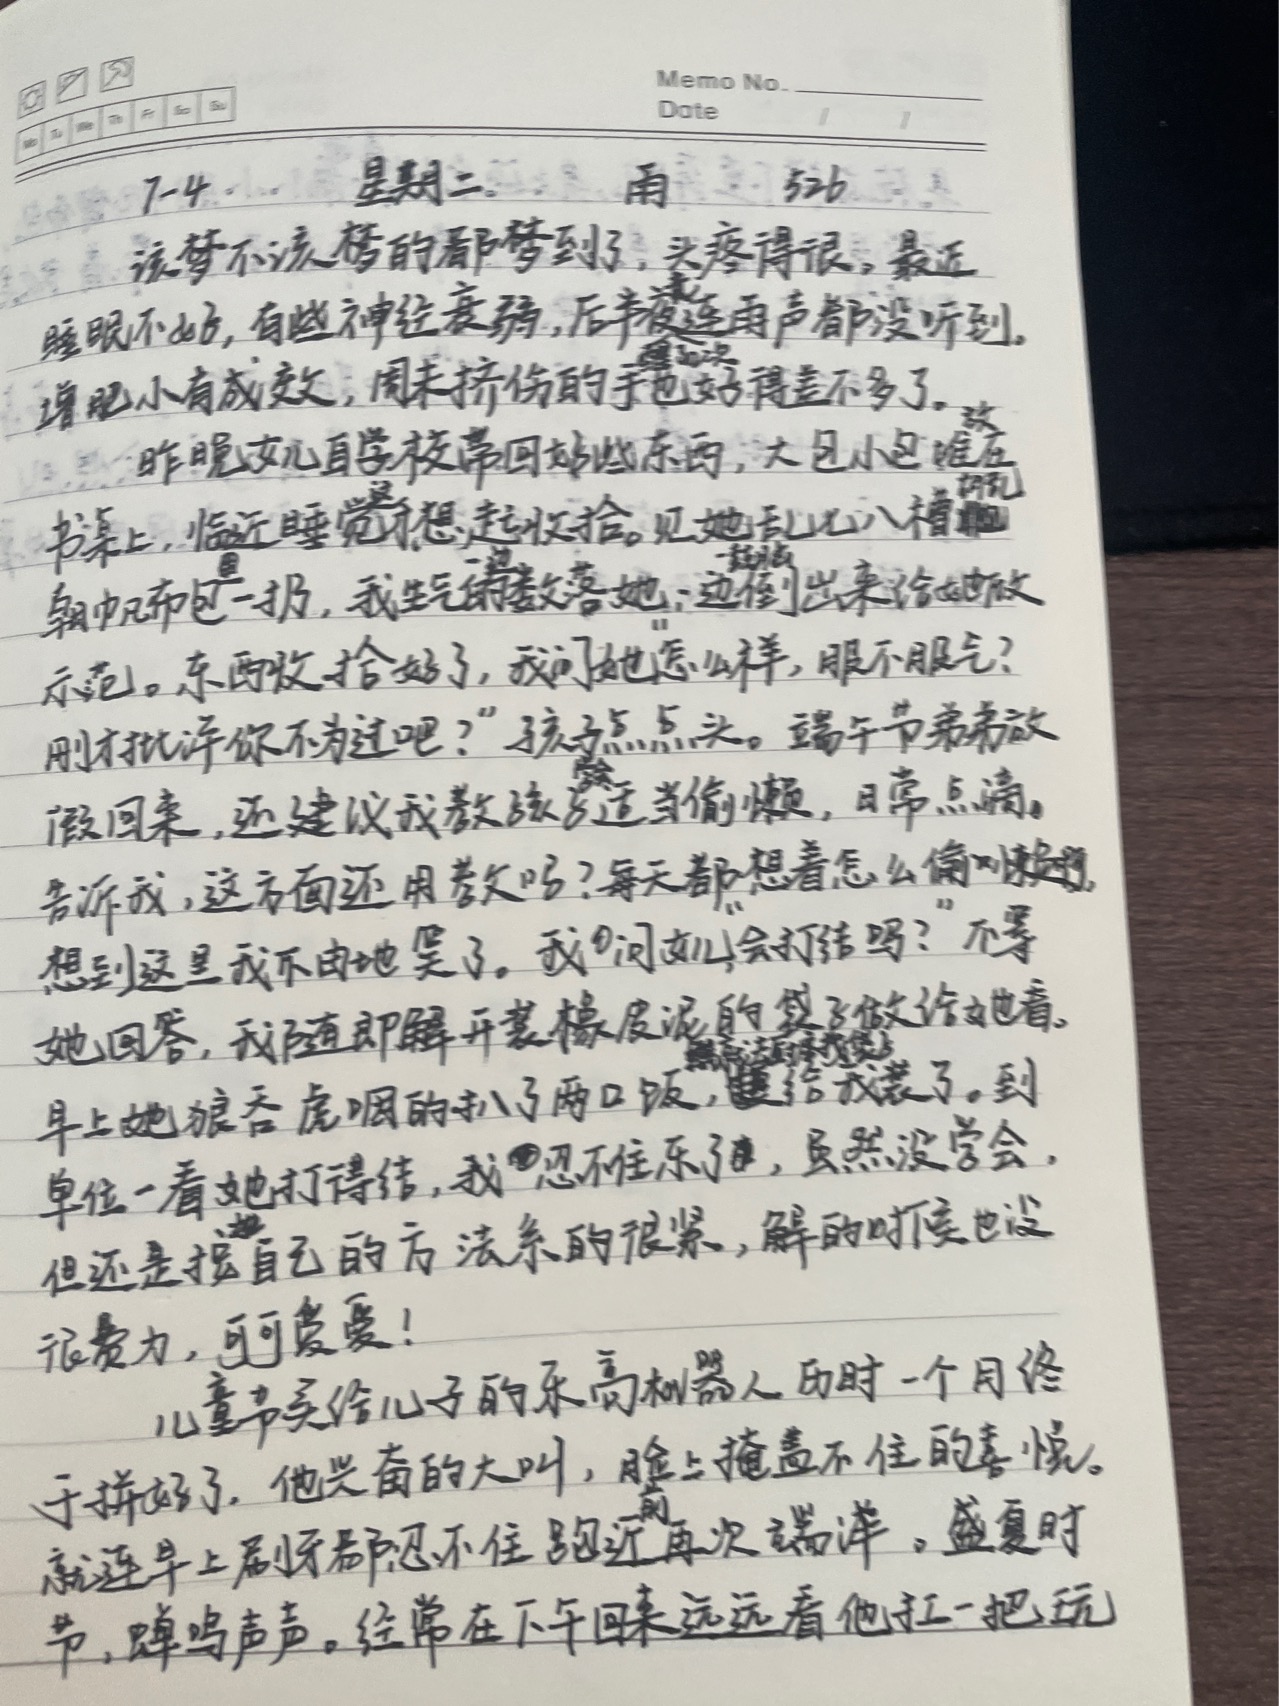 Memo No.
Date / /
Mo Tu We Th Fr Sa Su
7-4 星期二 雨 526
该梦不该梦的都梦到了，头疼得很。最近
睡眠不好，有些神经衰弱，后半夜连雨声都没听到。
增肥小有成效，周末挤伤的手也好得差不多了。
昨晚女儿自学校带回好些东西，大包小包堆放在
书桌上，临近睡觉才想起收拾。见她乱七八糟胡乱
朝帆布包里一扔，我生气一边数落她，一边倒出来给她做
示范。东西收拾好了，我问她“怎么样，服不服气？
刚才批评你不为过吧？”孩子点点头。端午节弟弟放
假回来，还建议我教孩子学会适当偷懒，日常点滴。
告诉我，这方面还用教吗？每天都想着怎么偷懒
想到这里我不由地笑了。我问女儿“会打结吗？”不等
她回答，我随即解开装橡皮泥的袋子做给她看。
早上她狼吞虎咽的扒了两口饭，给我装了。到
单位一看她打得结，我忍不住乐了，虽然没学会，
但还是按自己的方法系的很紧，解的时候也没
很费力，可可爱爱！
儿童节买给儿子的乐高机器人历时一个月终
于拼好了。他兴奋的大叫，脸上掩盖不住的喜悦。
就连早上刷牙都忍不住跑近前再次端详。盛夏时
节，蝉鸣声声。经常在下午回来远远看他扛一把玩